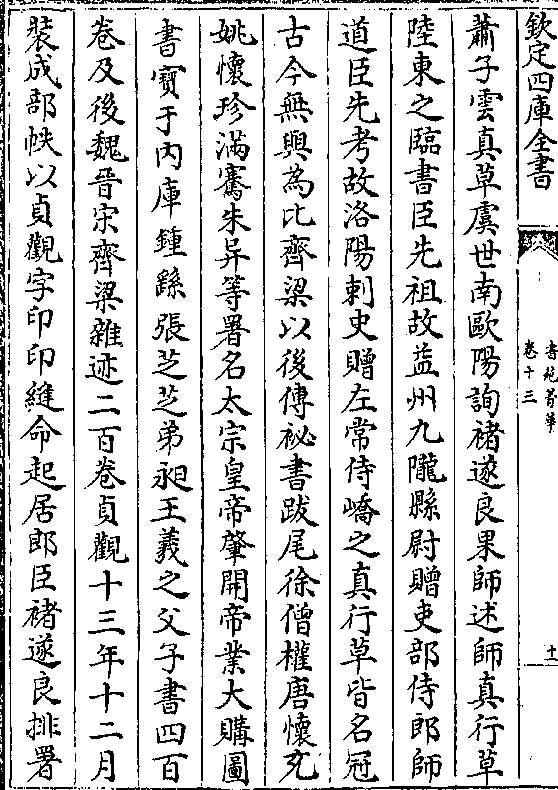 欽定四庫全書
書苑菁華
卷十三
十一
蕭子雲真草虞世南歐陽詢褚遂良果師述師真行草
陸東之臨書臣先祖故益州九隴縣尉贈吏部侍郎師
道臣先考故洛陽刺史贈左常侍嶠之真行草皆名冠
古今無與為比齊梁以後傳秘書跋尾徐僧權唐懷充
姚懷珍滿騫朱异等署名太宗皇帝肇開帝業大購圖
書寶于内庫鍾繇張芝芝弟昶王羲之父子書四百
卷及後魏晉宋齊梁雜迹二百卷貞觀十三年十二月
裝成部帙以貞觀字印印縫命起居郎臣褚遂良排署